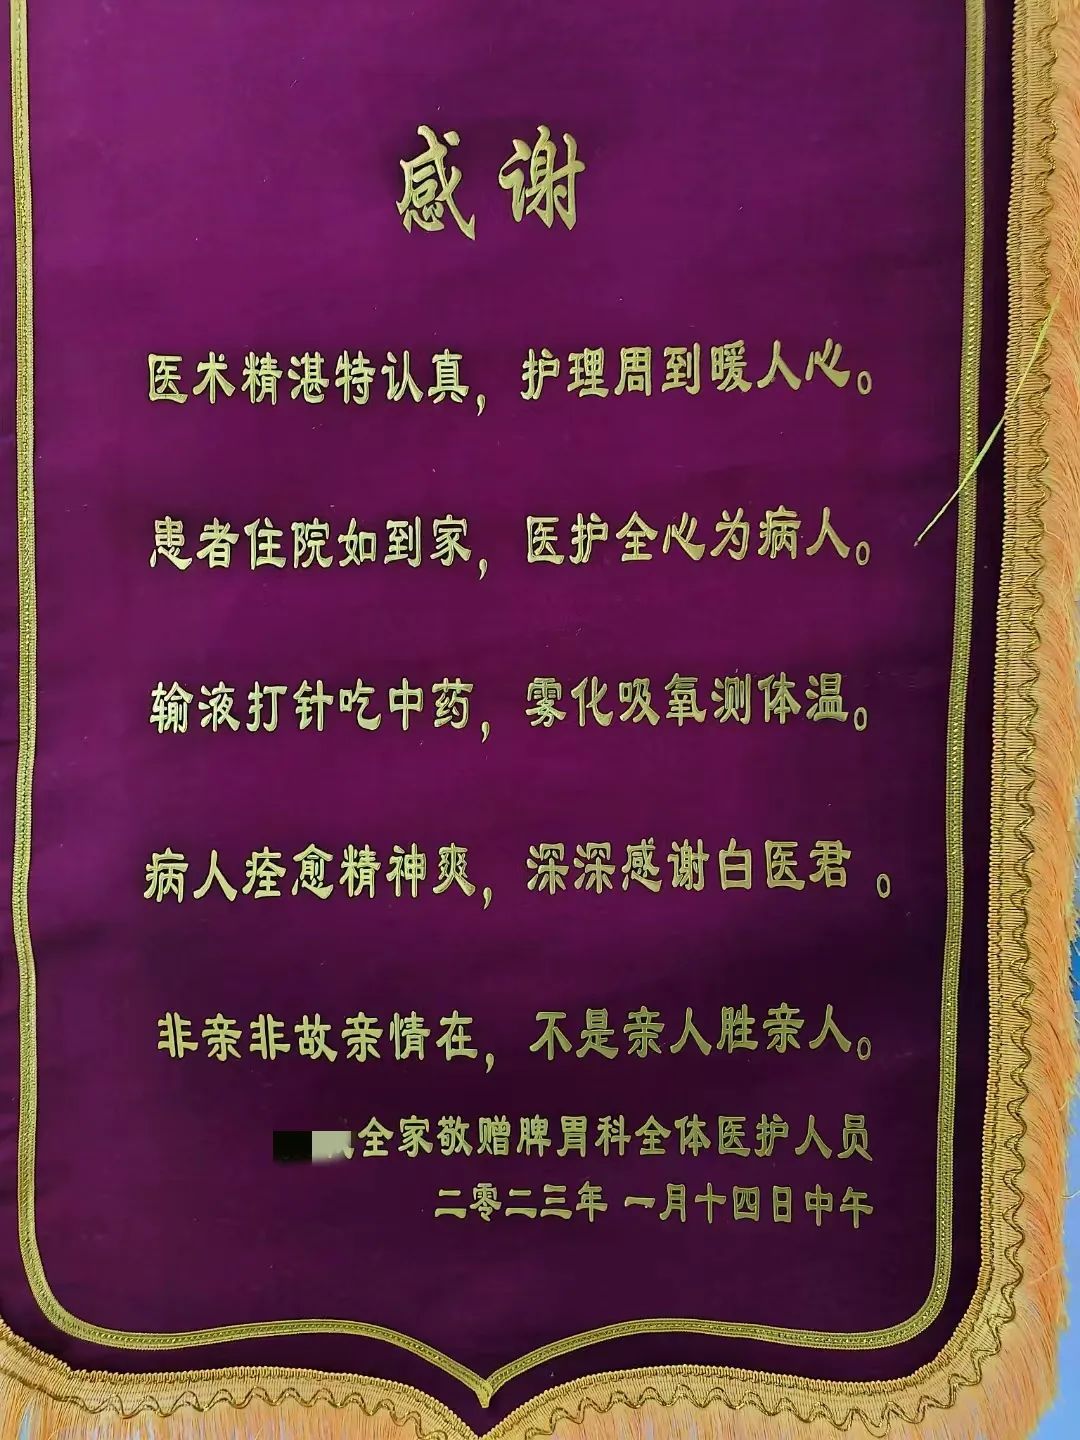 感谢
医术精湛特认真，护理周到暖人心。
患者住院如到家，医护全心为病人。
输液打针吃中药，雾化吸氧测体温。
病人痊愈精神爽，深深感谢白医君。
非亲非故亲情在，不是亲人胜亲人。
全家敬赠脾胃科全体医护人员
二零二三年 一月十四日中午